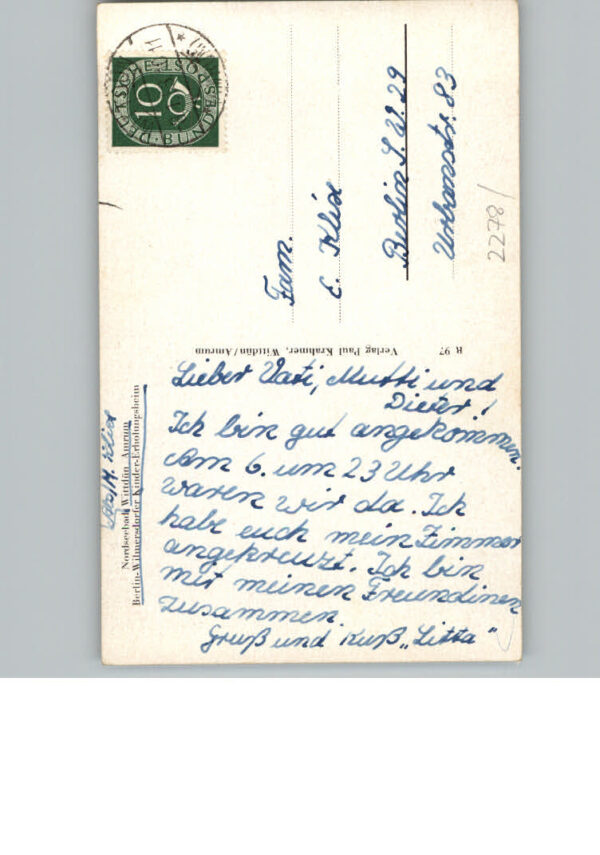 DEUTSCHE BUNDESPOST
10
Fam.
E. Klix
Berlin S.W. 29
Urbanstr. 83
2278/
R 97 Verlag Paul Krahmer, Wittdün/Amrum
Nordseebad Wittdün Amrum
Berlin-Wilmersdorfer Kinder-Erholungsheim
Lieber Vati, Mutti und
Dieter!
Ich bin gut angekommen.
Am 6. um 23 Uhr
waren wir da. Ich
habe euch mein Zimmer
angekreuzt. Ich bin
mit meinen Freundinen
zusammen.
Gruß und Kuß „Litta"